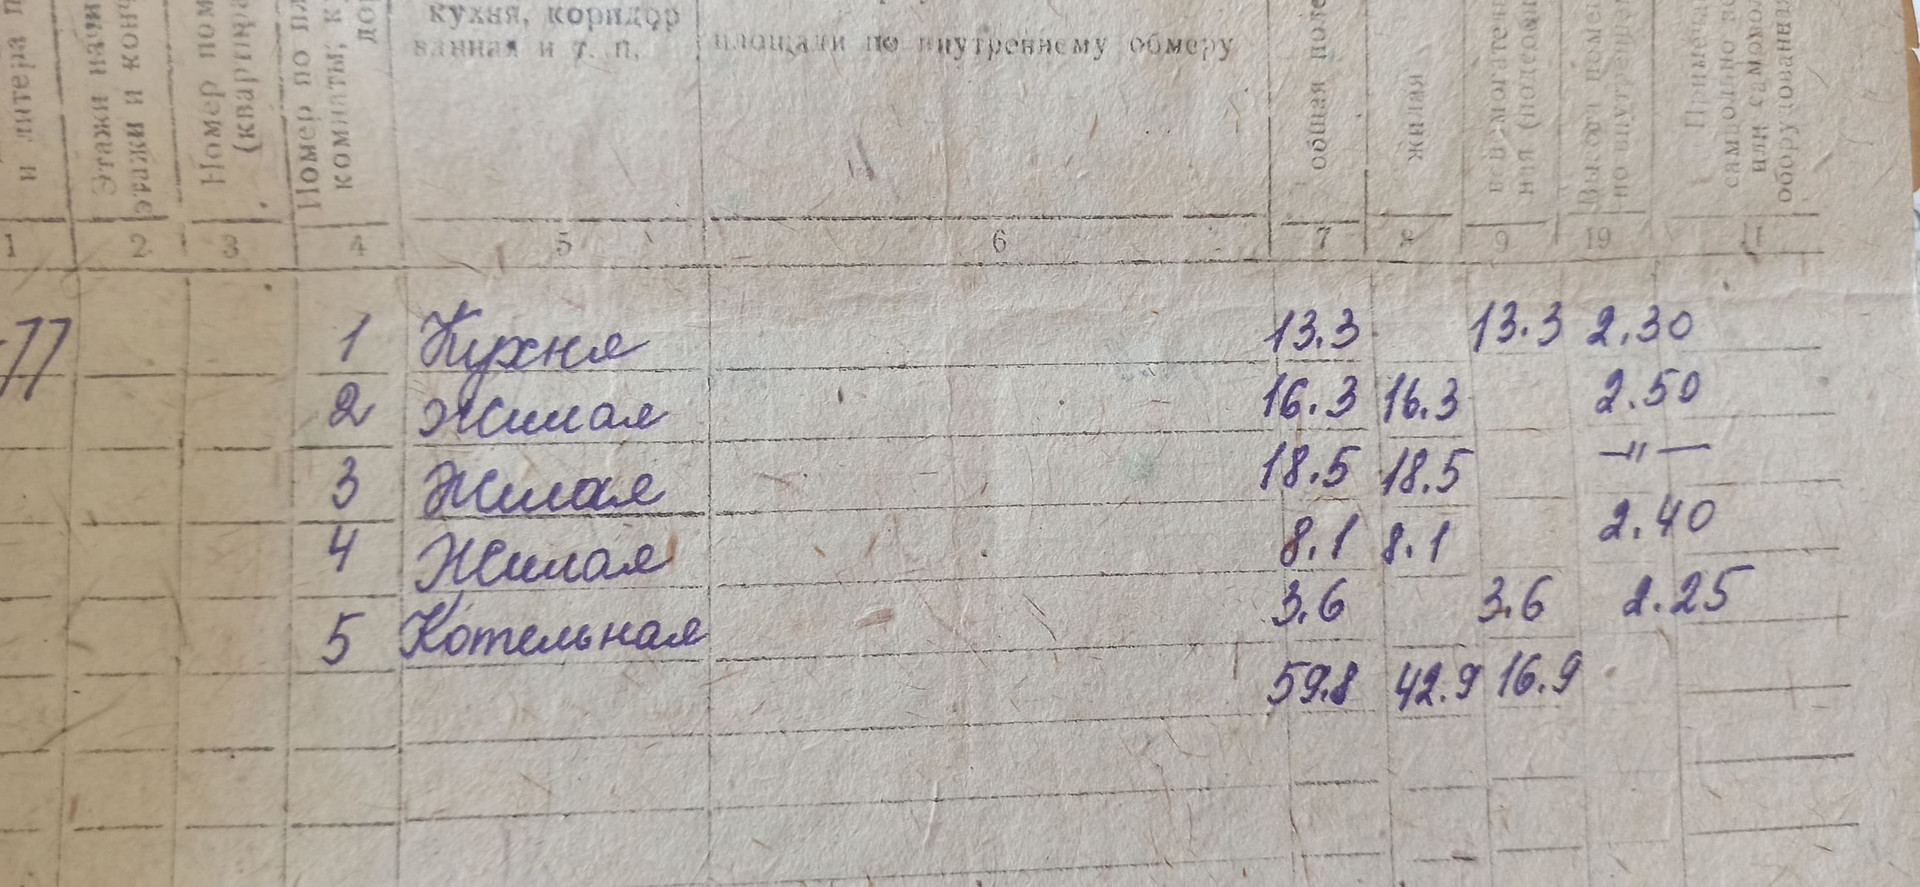 и литера п
Этажи начи
этажи и конч
Номер пом
(квартира
Номер по пл
комнаты, ку
дор
кухня, коридор
ванная и т. п.
площади по внутреннему обмеру
общая поле
жилая
вспомогатель
ная (подсобн
Высота помещ
по внутренне
Примеча
самовольно во
или самоволь
оборудования
1 2 3 4 5 6 7 8 9 10 11
1 Кухня 13.3 13.3 2.30
2 Жилая 16.3 16.3 2.50
3 Жилая 18.5 18.5 —"—
4 Жилая 8.1 8.1 2.40
5 Котельная 3.6 3.6 2.25
59.8 42.9 16.9